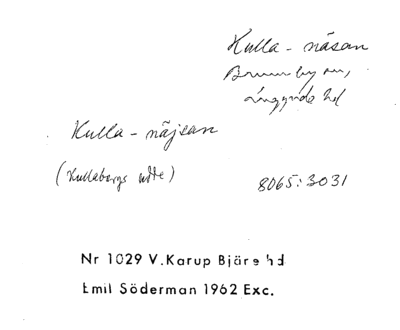 Kulla - näsan
Brunnby sn,
Luggude hd
Kulla - näjsan
(Kullabergs udde)
8065:3031
Nr 1029 V.Karup Bjäre hd
Emil Söderman 1962 Exc.